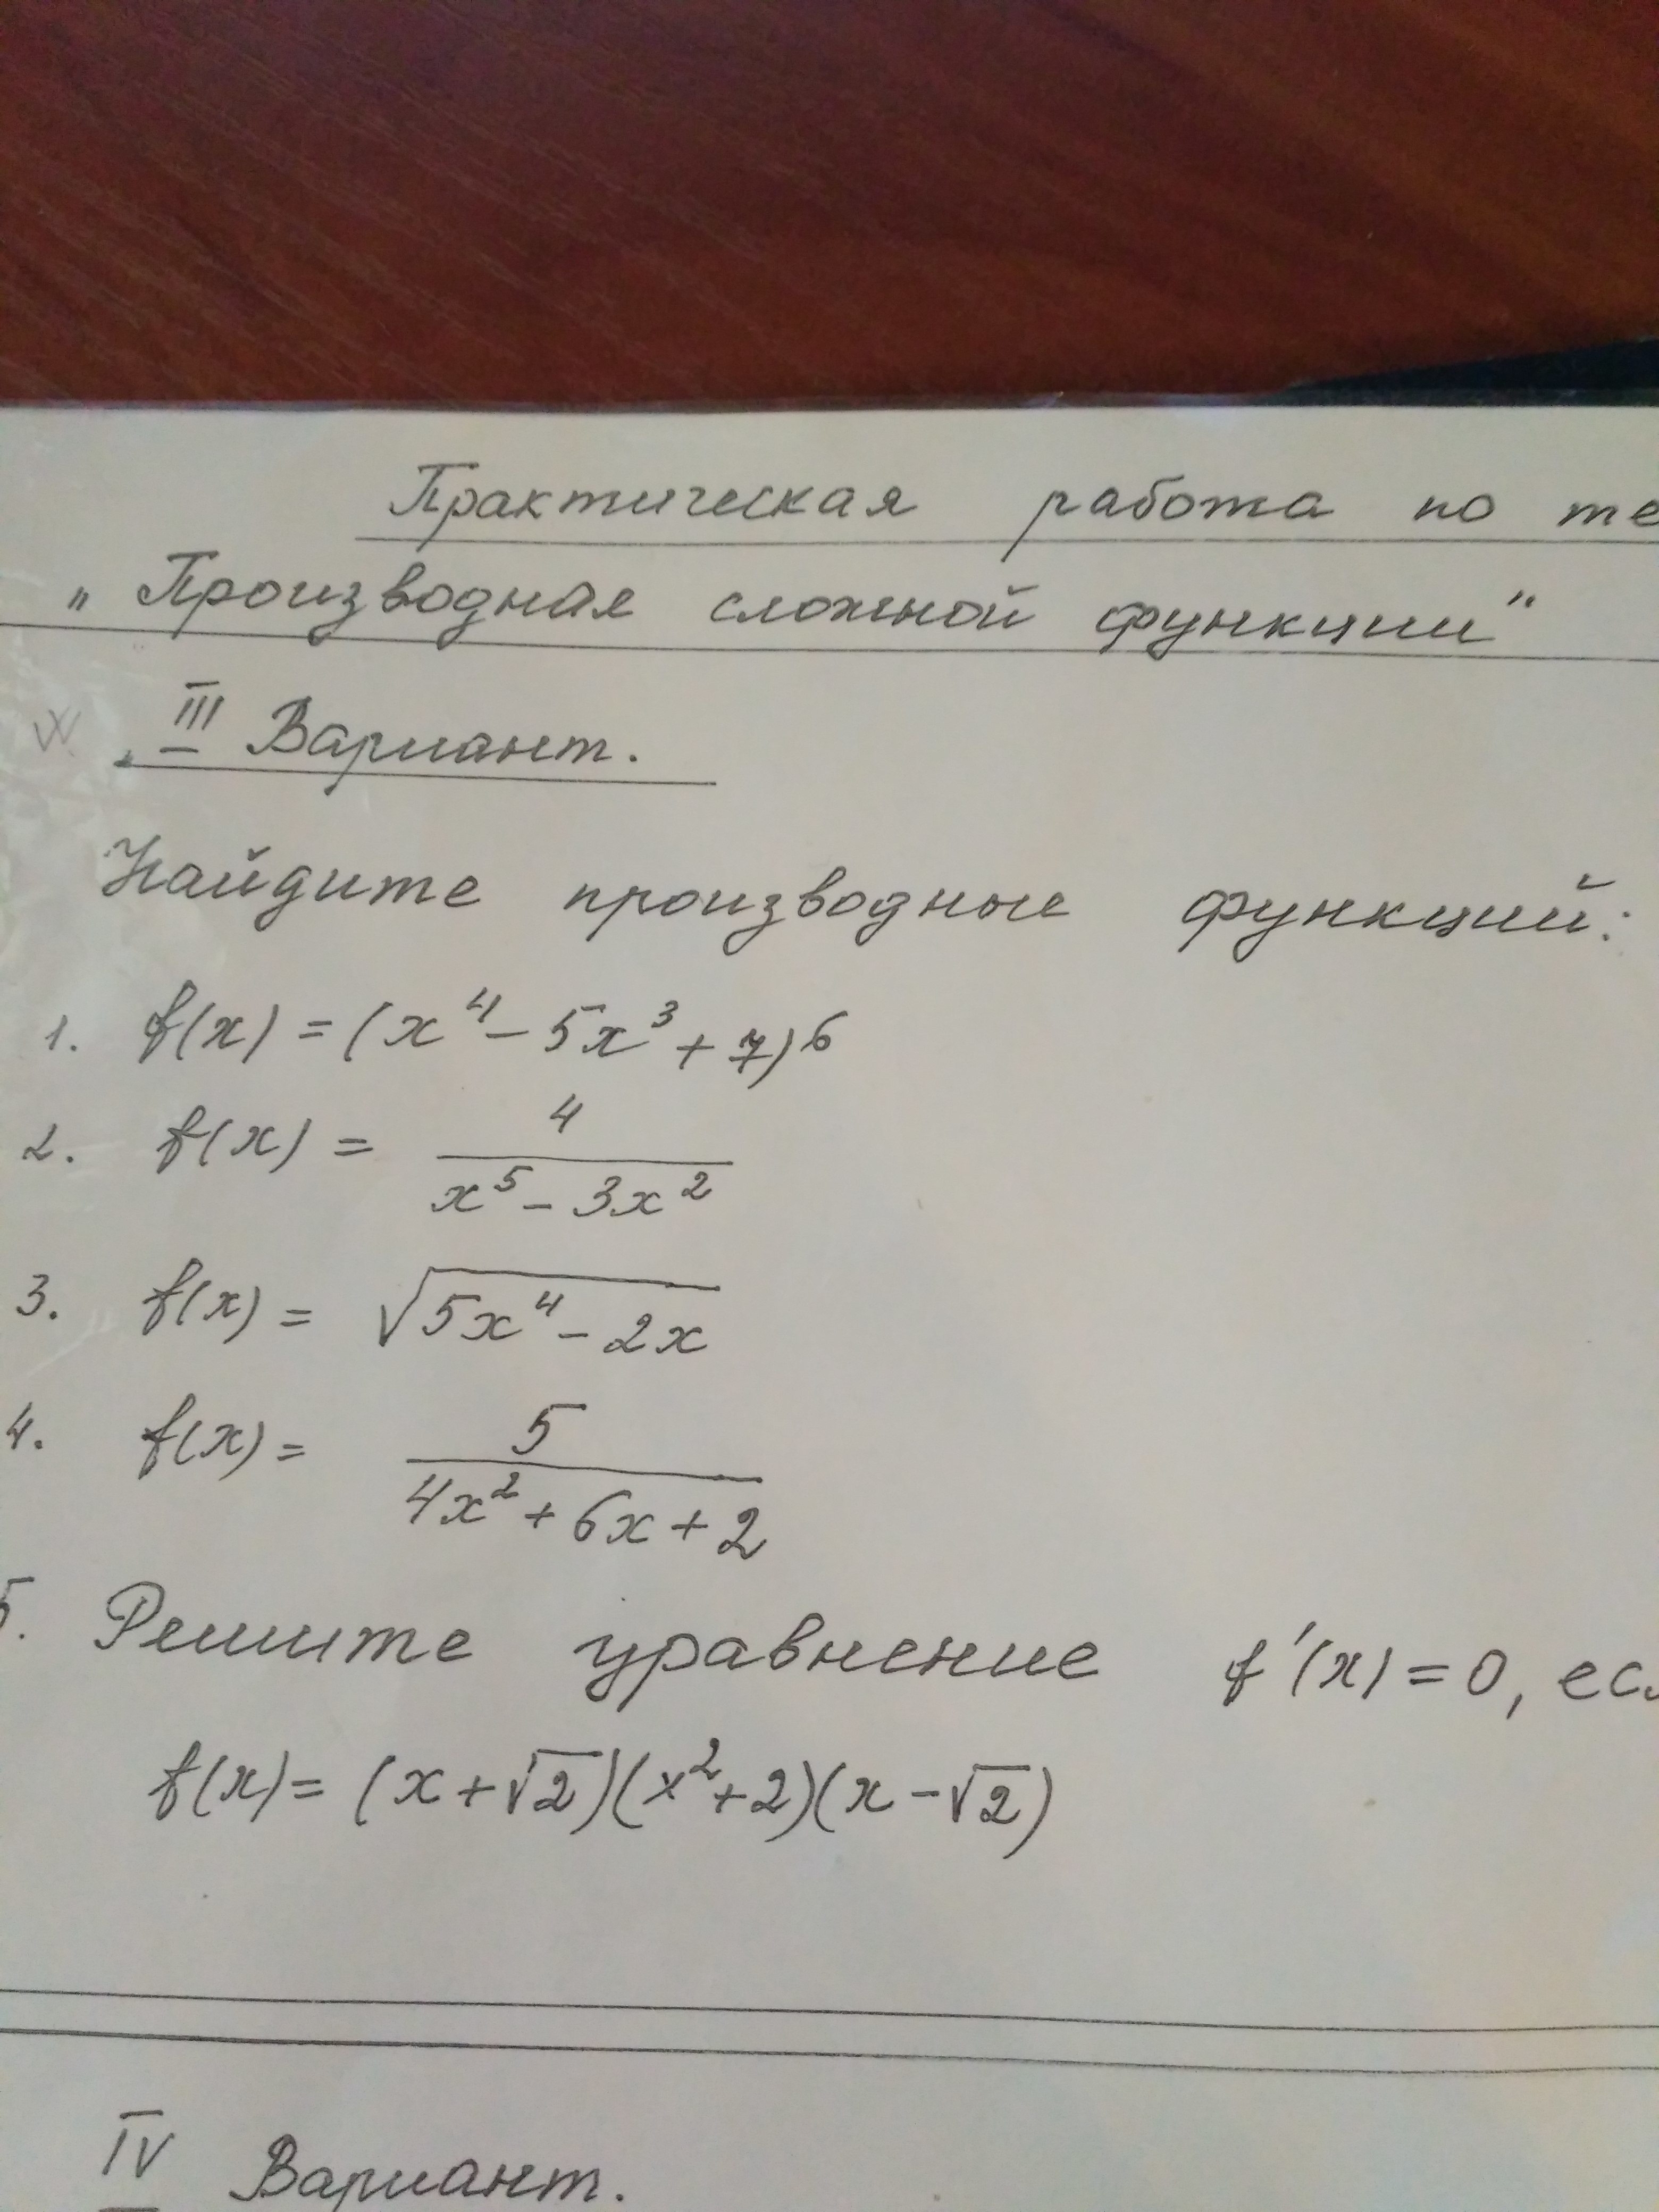 Практическая работа по те
„Производная сложной функции"
III Вариант.
Найдите производные функций:
1. f(x) = (x⁴ - 5x³ + 7)⁶
2. f(x) = 4 / (x⁵ - 3x²)
3. f(x) = √(5x⁴ - 2x)
4. f(x) = 5 / (4x² + 6x + 2)
5. Решите уравнение f'(x) = 0, есл
f(x) = (x + √2)(x² + 2)(x - √2)
IV Вариант.